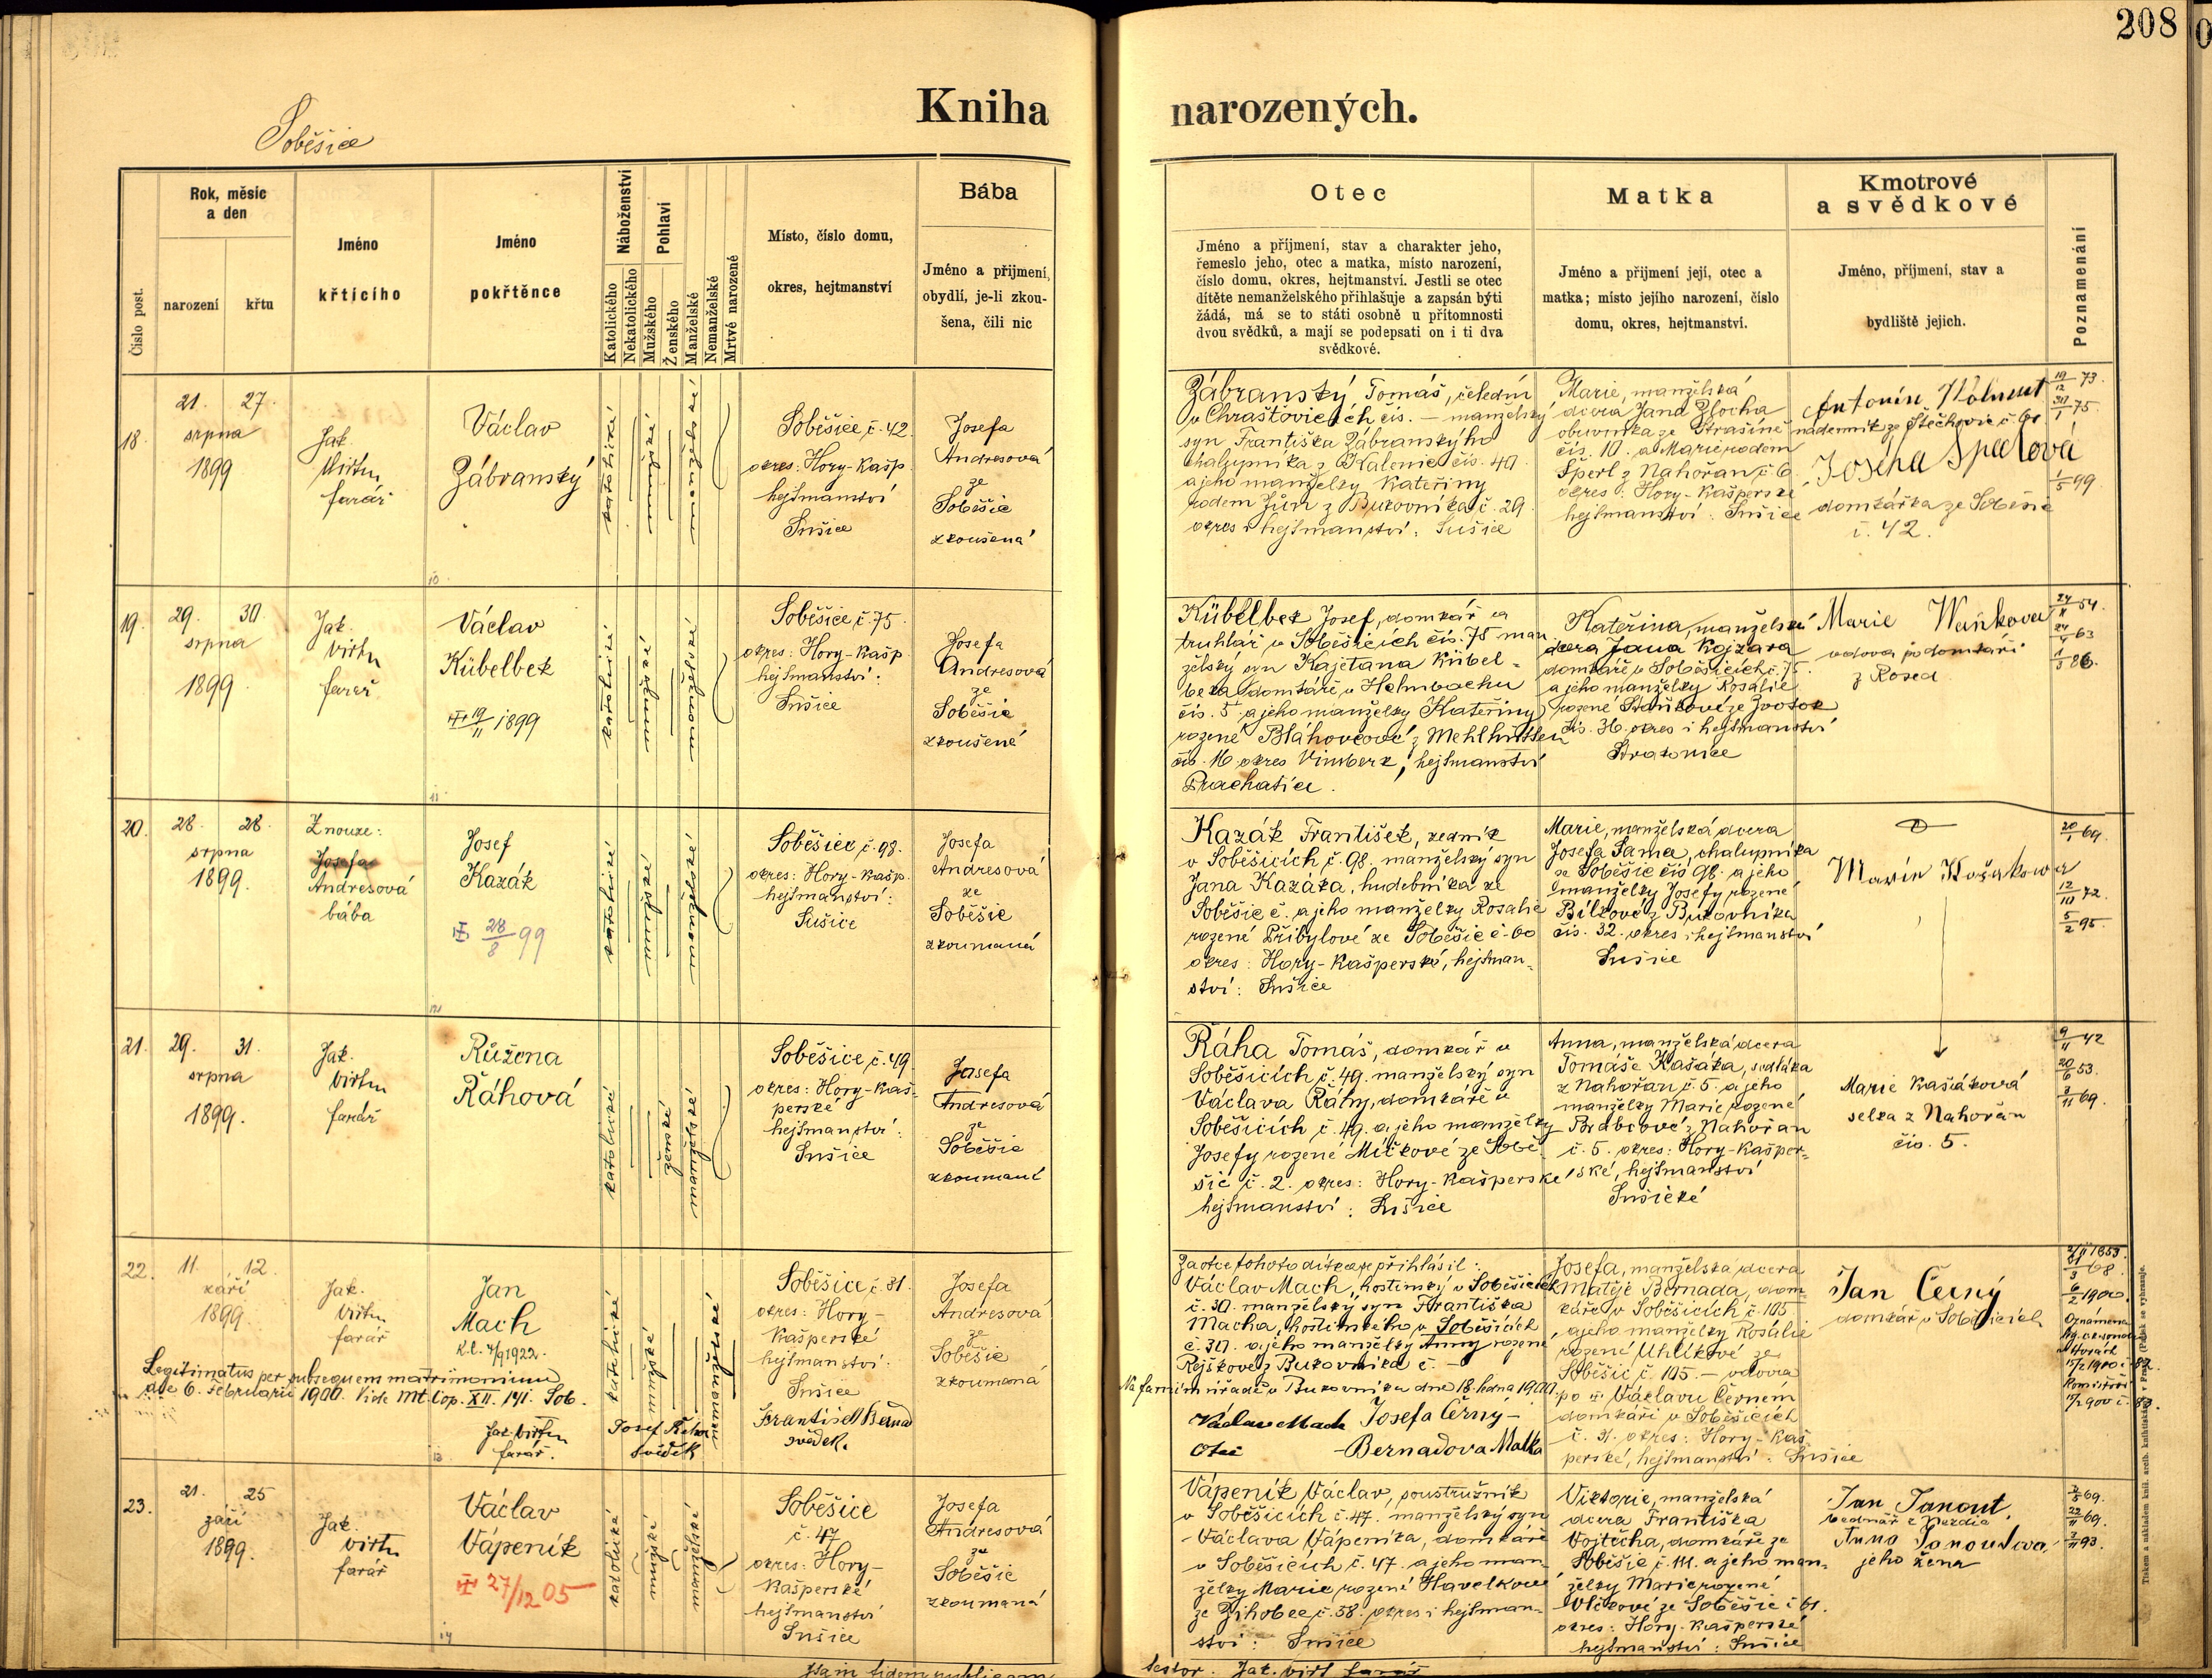 208
Kniha narozených.
Soběšice
Číslo post.
Rok, měsíc
a den
narození
křtu
Jméno
křtícího
Jméno
pokřtěnce
Náboženství
Katolického
Nekatolického
Pohlaví
Mužského
Ženského
Manželské
Nemanželské
Mrtvě narozené
Místo, číslo domu,
okres, hejtmanství
Bába
Jméno a přijmení,
obydlí, je-li zkou-
šena, čili nic
Otec
Jméno a příjmení, stav a charakter jeho,
řemeslo jeho, otec a matka, místo narození,
číslo domu, okres, hejtmanství. Jestli se otec
dítěte nemanželského přihlašuje a zapsán býti
žádá, má se to státi osobně u přítomnosti
dvou svědků, a mají se podepsati on i ti dva
svědkové.
Matka
Jméno a přijmení její, otec a
matka; místo jejího narození, číslo
domu, okres, hejtmanství.
Kmotrové
a svědkové
Jméno, příjmení, stav a
bydliště jejich.
Poznamenání
18.
21. 27.
srpna
1899
Jak.
Virtn
farář
Václav
Zábranský
katolické
mužské
manželské
Soběšice č. 42.
okres: Hory-Kašp.
hejtmanství
Sušice
Josefa
Andresová
ze
Soběšic
zkoušená
Zábranský Tomáš, čeledín
v Chraštovicích čís. — manželský
syn Františka Zábranského
chalupníka z Kalenic čís. 40.
a jeho manželky Kateřiny
rodem Jůn z Bukovníka č. 29
okres i hejtmanství: Sušice
Marie, manželská
dcera Jana Zlocha
obuvníka ze Strašíně
čís. 10. a Marie rodem
Šperl z Nahořan č. 6
okres: Hory-Kašperské
hejtmanství: Sušice
Antonín
nádenník ze Štěchovic č. 60
Josefa
domkářka ze Soběšic
č. 42.
19/12 73.
30/1 75.
1/5 99
19.
29. 30
srpna
1899
Jak.
Virtn
farář
Václav
Kübelbek
19/11 1899
katolické
mužské
manželské
Soběšice č. 75
okres: Hory-Kašp.
hejtmanství:
Sušice
Josefa
Andresová
ze
Soběšic
zkoušené
Kübelbek Josef, domkář a
truhlář v Soběšicích čís. 75 man
želský syn Kajetana Kübel-
beka domkáře v Helmbachu
čís. 5. a jeho manželky Kateřiny
rozené Bláhovcové z Mehlhüttlen
čís. 16 okres Vimberk, hejtmanství
Prachatice.
Kateřina, manželská
dcera Jana Kojzara
domkáře v Soběšicích č. 75.
a jeho manželky Rosalie
rozené Staňkové ze Zvotok
čís. 36. okres i hejtmanství
Strakonice
Marie Waňkova
vdova po domkáři
z Rosed
54.
63
86.
20.
28. 28.
srpna
1899.
Z nouze:
Josefa
Andresová
bába
Josef
Kazák
28/8 99
katolické
mužské
manželské
Soběšice č. 98.
okres: Hory-Kašp.
hejtmanství:
Sušice
Josefa
Andresová
ze
Soběšic
zkoumaná
Kazák František, zedník
v Soběšicích č. 98. manželský syn
Jana Kazáka, hudebníka ze
Soběšic č. a jeho manželky Rosalie
rozené Přibylové ze Soběšic č. 60
okres: Hory-Kašperské, hejtman-
ství: Sušice
Marie, manželská dcera
Josefa Sama, chalupníka
ze Soběšic čís 98. a jeho
manželky Josefy rozené
Bílkové z Bukovníka
čís. 32. okres i hejtmanství
Sušice
Marie Kašákowa
20/1 69.
12/10 72.
5/2 95.
21.
29. 31.
srpna
1899.
Jak.
Virtn
farář
Růžena
Ráhová
katolické
ženské
manželské
Soběšice č. 49.
okres: Hory-Kaš-
perské
hejtmanství:
Sušice
Josefa
Andresová
ze
Soběšic
zkoumaná
Ráha Tomáš, domkář v
Soběšicích č. 49. manželský syn
Václava Ráhy, domkáře v
Soběšicích č. 49. a jeho manželky
Josefy rozené Míčkové ze Sobě-
šic č. 2. okres: Hory-Kašperské
hejtmanství: Sušice
Anna, manželská dcera
Tomáše Kašáka, sedláka
z Nahořan č. 5. a jeho
manželky Marie rozené
Brabcové z Nahořan
č. 5. okres: Hory-Kašper-
ské, hejtmanství
Sušické
Marie Kašáková
selka z Nahořan
čís. 5.
9/11 42
20/6 53.
69.
22.
11. 12.
září
1899.
Jak.
Virtn
farář
Jan
Mach
katolické
mužské
nemanželské
Soběšice č. 31.
okres: Hory-
Kašperské
hejtmanství:
Sušice
Josefa
Andresová
ze
Soběšic
zkoumaná
Legitimatus per subsequens matrimonium
die 6. Februarii 1900. Vide Mt. Cop. XII. 141. Sob.
Jak. Virtn
farář.
Josef
svědek
František Bernad
svědek.
Za otce tohoto dítěte se přihlásil:
Václav Mach, hostinský v Soběšicích
č. 30. manželský syn Františka
Macha, hostinského v Soběšicích
č. 30. a jeho manželky Anny rozené
Rejškové z Bukovníka č. —
Na farním úřadě v Bukovníku dne 18. ledna 1900.
Václav Mach Josefa Černý-
Otec -Bernadova Matka
Josefa, manželská dcera
Matěje Bernada, dom-
káře v Soběšicích č. 105
a jeho manželky Rosalie
rozené Uhlíkové ze
Soběšic č. 105. — vdova
po Václavu Černém
domkáři v Soběšicích
č. 31. okres: Hory-Kaš
perské, hejtmanství: Sušice
Jan Černý
domkář v Soběšicích
1853.
68.
6/2 1900.
23.
21. 25
září
1899.
Jak.
Virtn
farář
Václav
Vápeník
27/12 05
katolické
mužské
manželské
Soběšice
č. 47
okres: Hory-
Kašperské
hejtmanství
Sušice
Josefa
Andresová
ze
Soběšic
zkoumaná
Vápeník Václav, poustružník
v Soběšicích č. 47. manželský syn
Václava Vápeníka, domkáře
v Soběšicích č. 47. a jeho man-
želky Marie rozené Havelkové
ze Žihobec č. 38. okres i hejtman-
ství: Sušice
Viktorie, manželská
dcera Františka
Vojtěcha, domkáře ze
Soběšic č. 111. a jeho man-
želky Marie rozené
Vlčkové ze Soběšic č. 61.
okres: Hory-Kašperské
hejtmanství: Sušice
Jan Janout.
bednář z
Anna Janoutova
jeho žena
69.
69.
93.